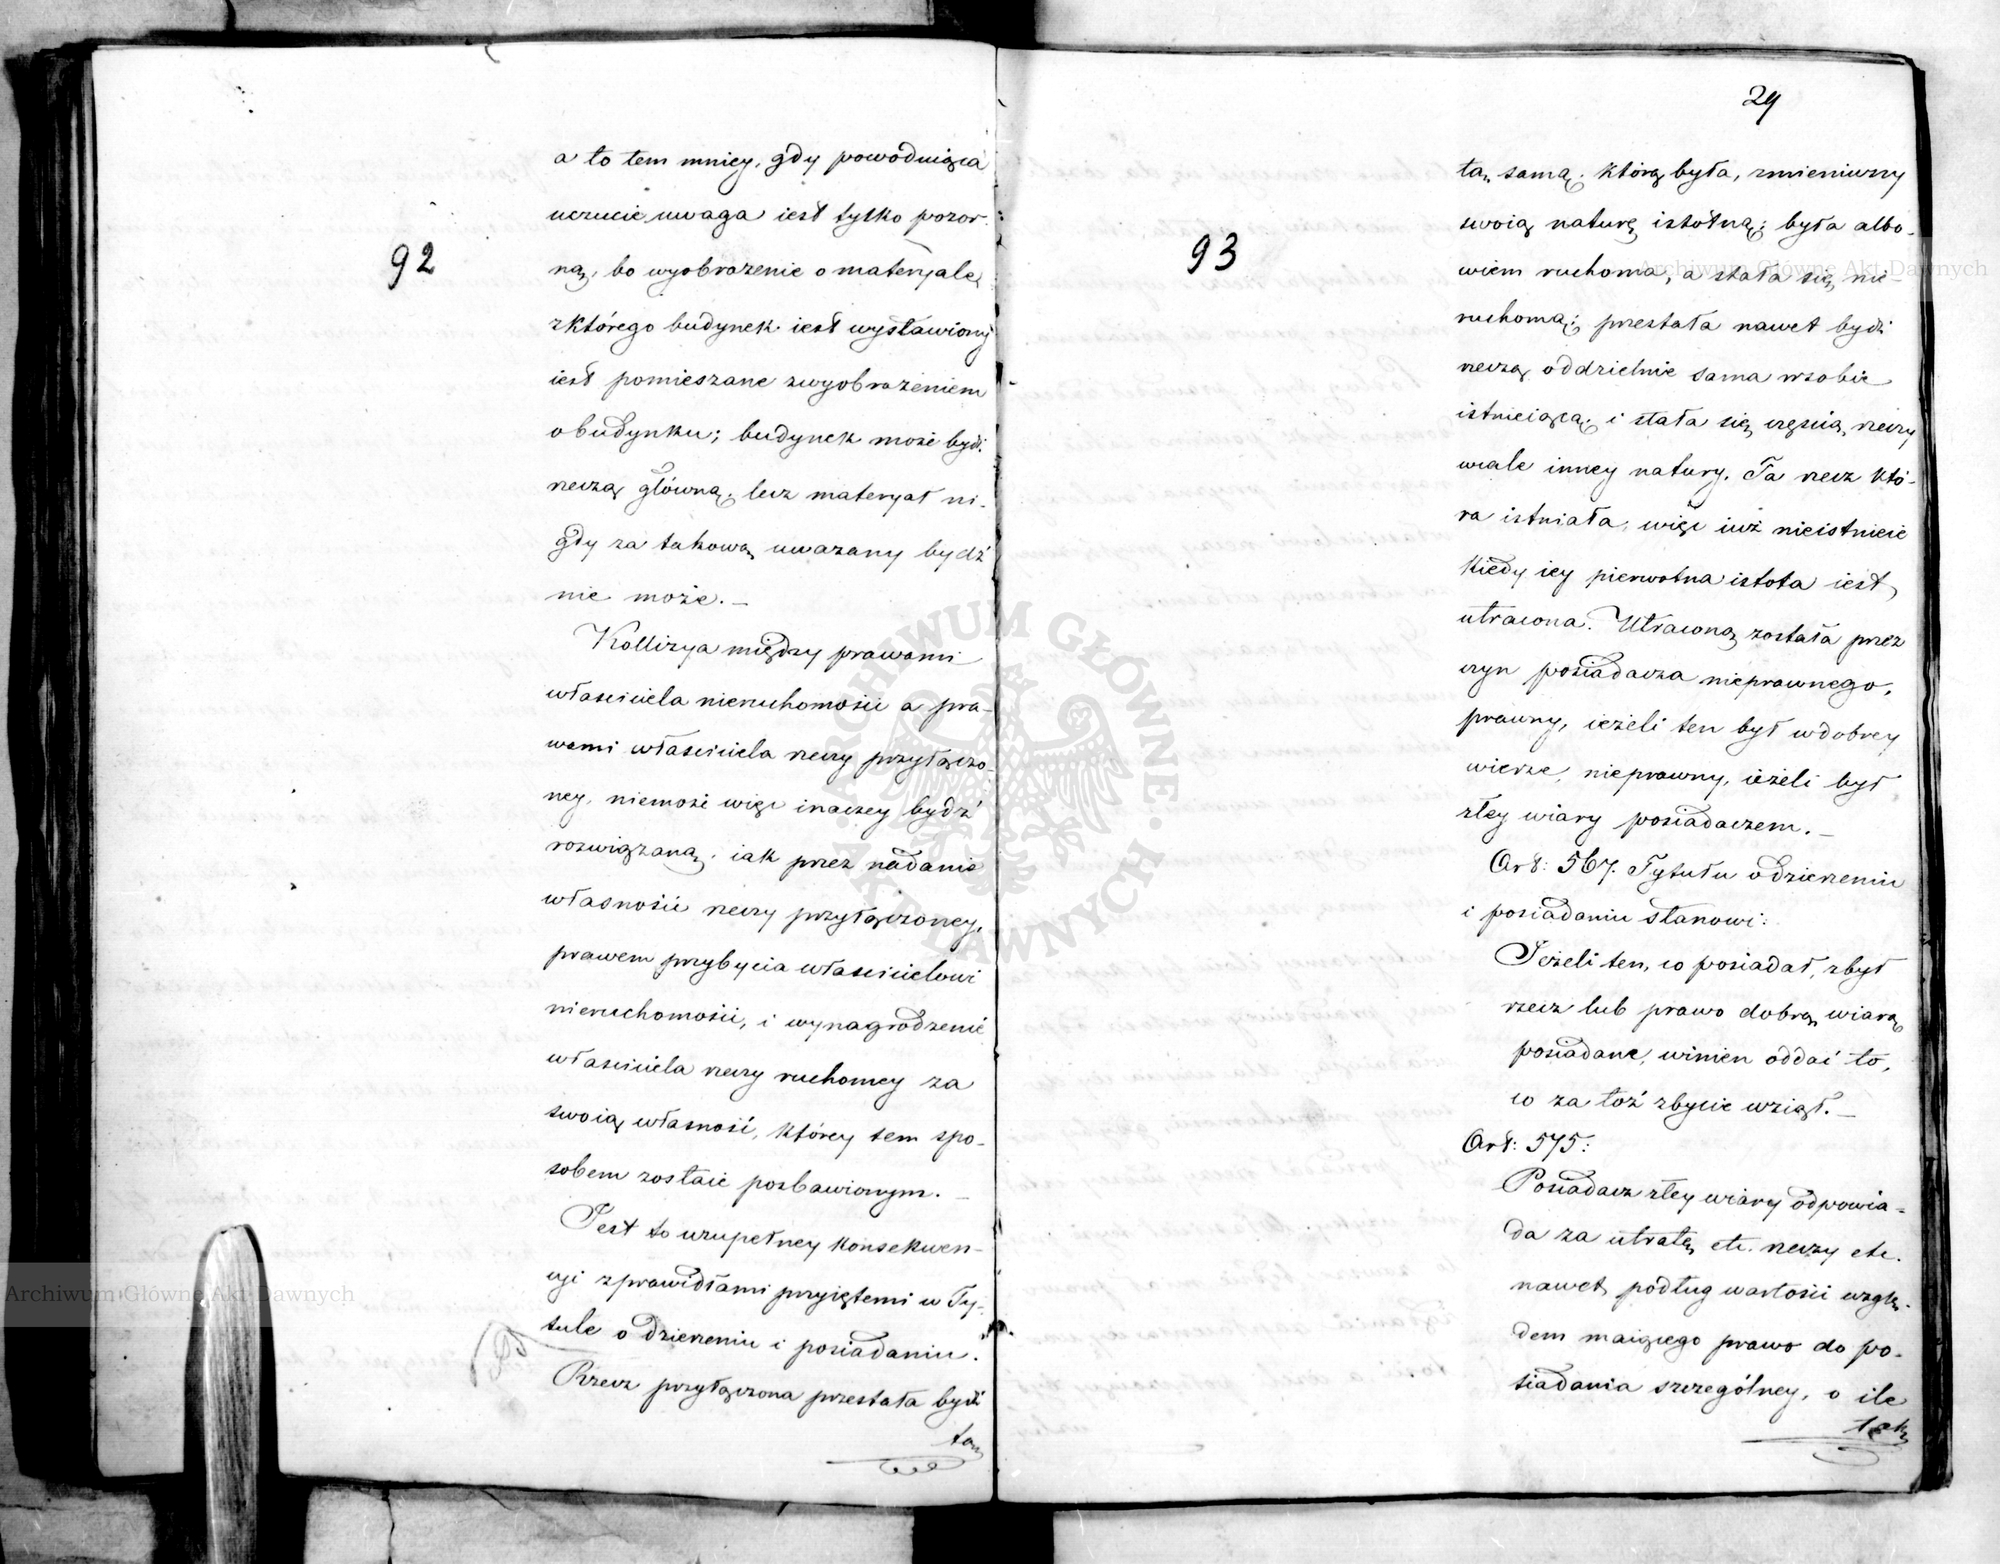 92
a to tem mniey, gdy powoduiąca
uczucie uwaga iest tylko pozor-
ną, bo wyobrażenie o materyale
z którego budynek iest wystawiony
iest pomieszane z wyobrażeniem
o budynku; budynek może bydź
rzeczą główną, lecz materyał ni-
gdy za takową uważany bydź
nie może. —
Kollizya między prawami
właściciela nieruchomości a pra-
wami właściciela rzeczy przyłączo-
ney, niemoże więc inaczey bydź
rozwiązaną, iak przez nadanie
własności rzeczy przyłączoney,
prawem przybycia właścicielowi
nieruchomości, i wynagrodzenie
właściciela rzeczy ruchomey za
swoią własność, którey tem spo-
sobem zostaie pozbawionym. —
Jest to w zupełney konsekwen-
cyi z prawidłami przyiętemi w Ty-
tule o dzierzeniu i posiadaniu.
Rzecz przyłączona przestała bydź
tą
29
93
tą samą, którą była, zmieniwszy
swoią naturę istotną; była albo-
wiem ruchoma, a stała się nie-
ruchomą; przestała nawet bydź
rzeczą oddzielnie sama w sobie
istnieiącą, i stała się częścią rzeczy
wcale inney natury. Ta rzecz któ-
ra istniała, więc iuż nieistnieie
kiedy iey pierwotna istota iest
utracona. Utraconą została przez
czyn posiadacza nieprawnego,
prawny, ieżeli ten był w dobrey
wierze, nieprawny, ieżeli był
złey wiary posiadaczem. —
Art: 567. Tytułu o dzierzeniu
i posiadaniu stanowi:
Jeżeli ten, co posiadał, zbył
rzecz lub prawo dobrą wiarą
posiadane, winien oddać to,
co za toż zbycie wziął. —
Art: 575:
Posiadacz złey wiary odpowia-
da za utratę etc. rzeczy etc.
nawet podług wartości wzglę-
dem maiącego prawo do po-
siadania szczególney, o ile
taką
Archiwum Główne Akt Dawnych
Archiwum Główne Akt Dawnych
ARCHIWUM GŁÓWNE AKT DAWNYCH